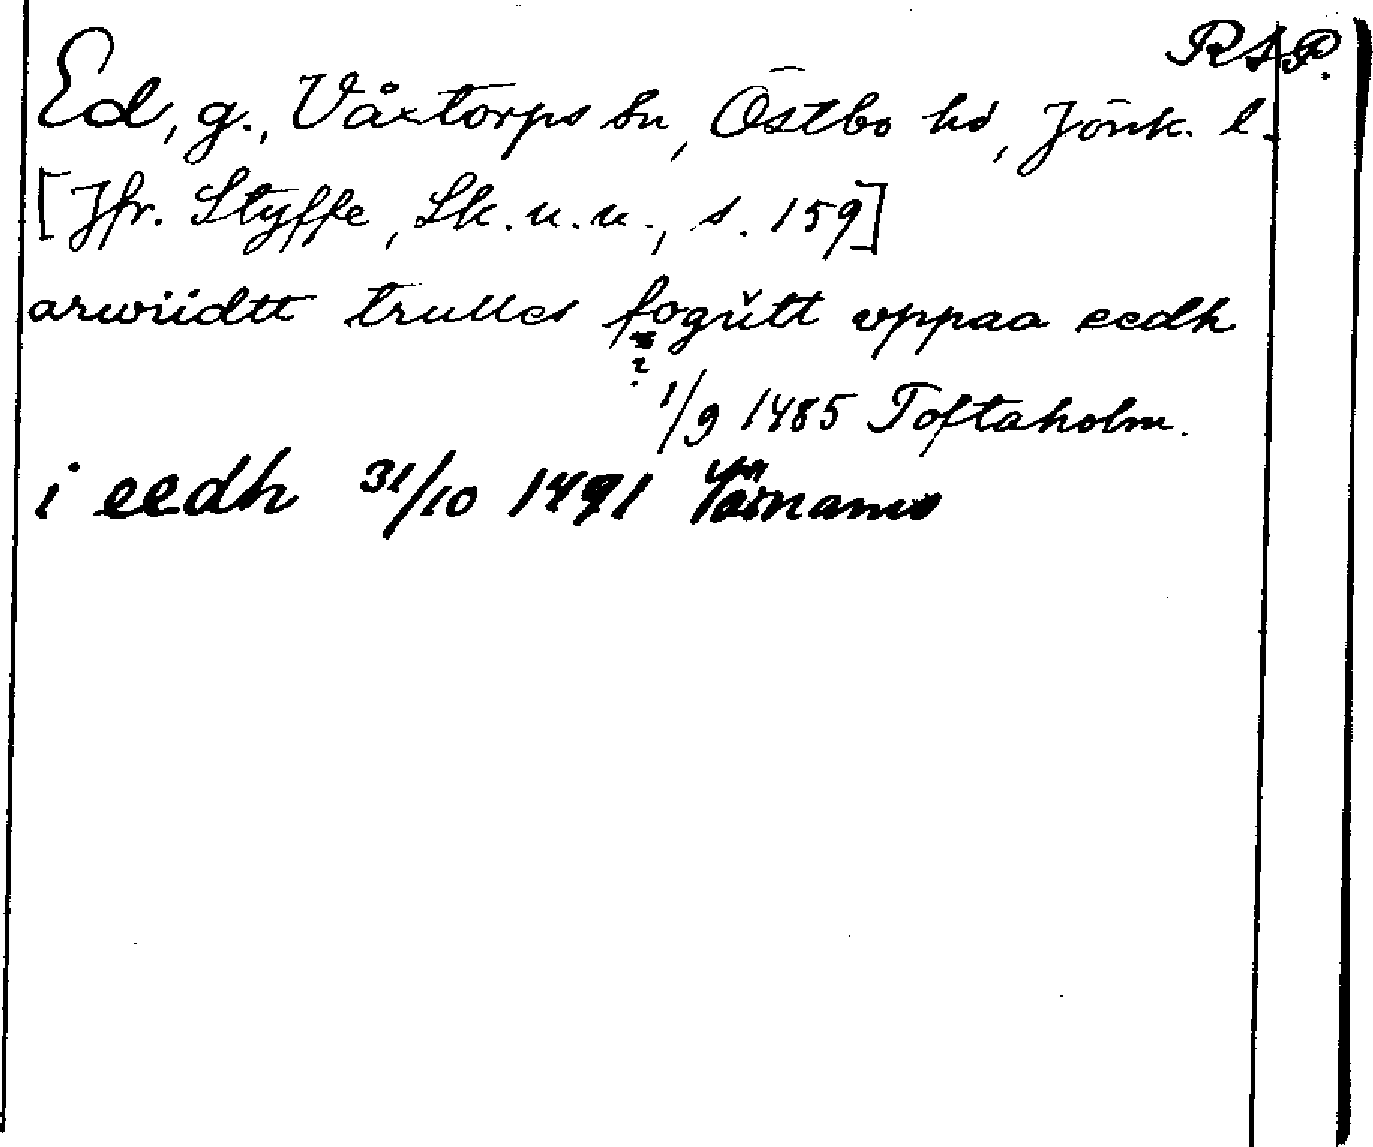 RAP.
Ed, g., Våxtorps sn, Östbo hd, Jönk. l.
[Jfr. Styffe, Sk. u. u., s. 159]
arwiidtt trulles fogŭtt vppaa eedh
?
1/9 1485 Toftaholm.
i eedh 31/10 1491 Värnamo